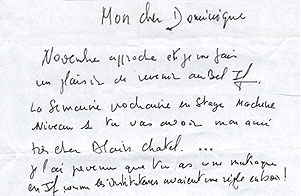 Mon cher Dominique
Novembre approche et je me fais
un plaisir de revenir au Bel
La Semaine prochaine en Stage Machine
Niveau 1 tu vas avoir mon ami
très cher Alain Chatel. ...
Je l'ai prévenu que tu as une
comme les instituteurs avaient une règle en bois !